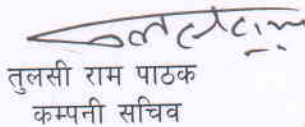 तुलसी राम पाठक
कम्पनी सचिव